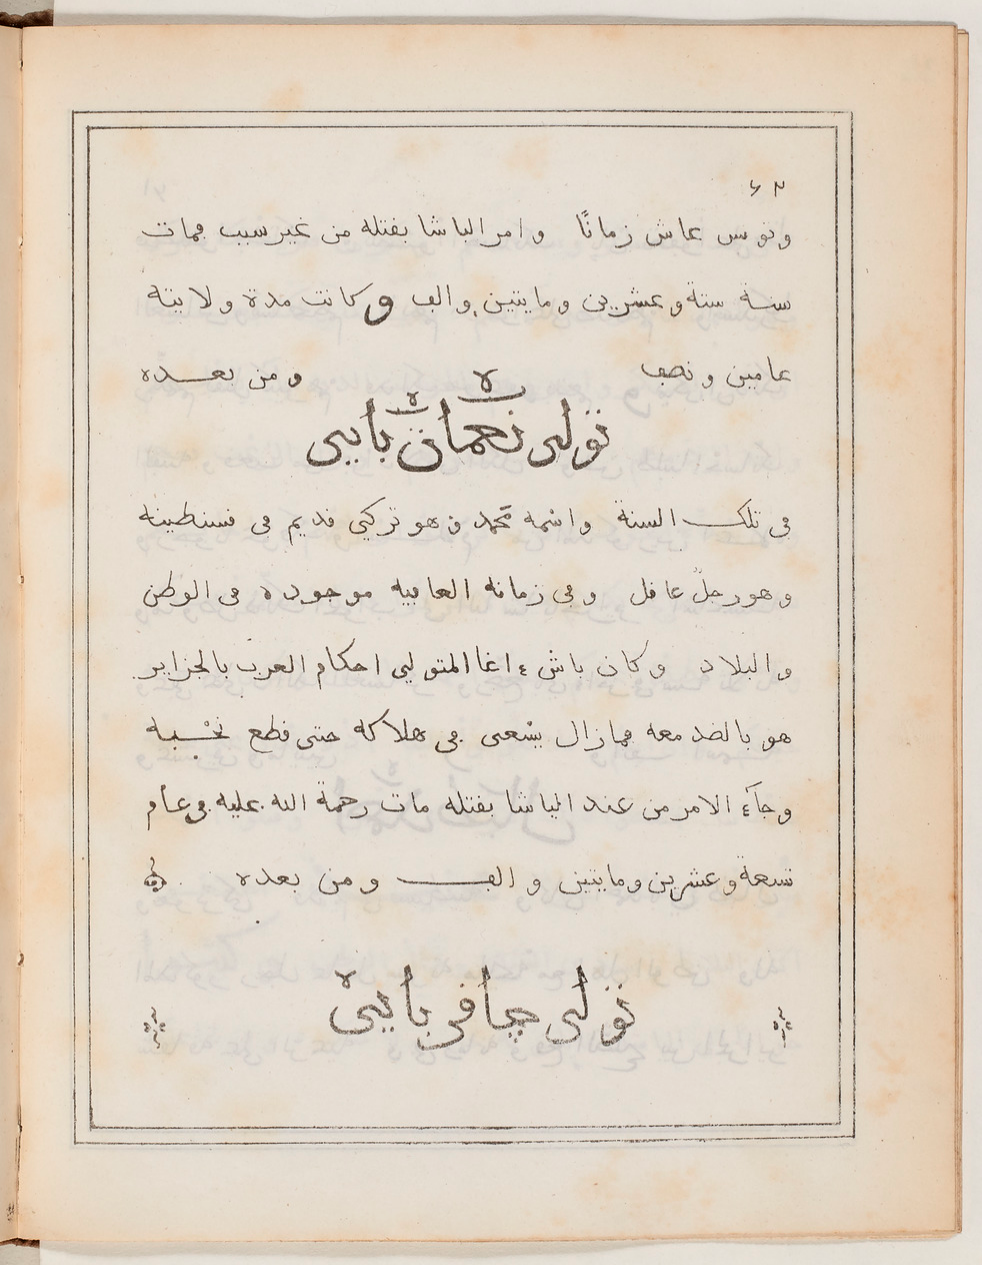 ٦٣
وتونس عاش زمانًا وامر الباشا بقتله من غير سبب فمات
سنة ستة وعشرين ومايتين والف وكانت مدة ولايته
عامين ونصف ومن بعده
تولى نعمان باي
في تلك السنة واسمه محمد وهو تركي قديم في قسنطينه
وهو رجلٌ عاقل وفي زمانه العافيه موجوده في الوطن
والبلاد وكان باش ءاغا المتولي احكام العرب بالجزاير
هو بالضد معه فمازال يسْعى في هلاكه حتى قطع نحْسبه
وجآء الامر من عند الباشا بقتله مات رحمة الله عليه في عام
تسعة وعشرين ومايتين والف ومن بعده
تولى چاقر باي